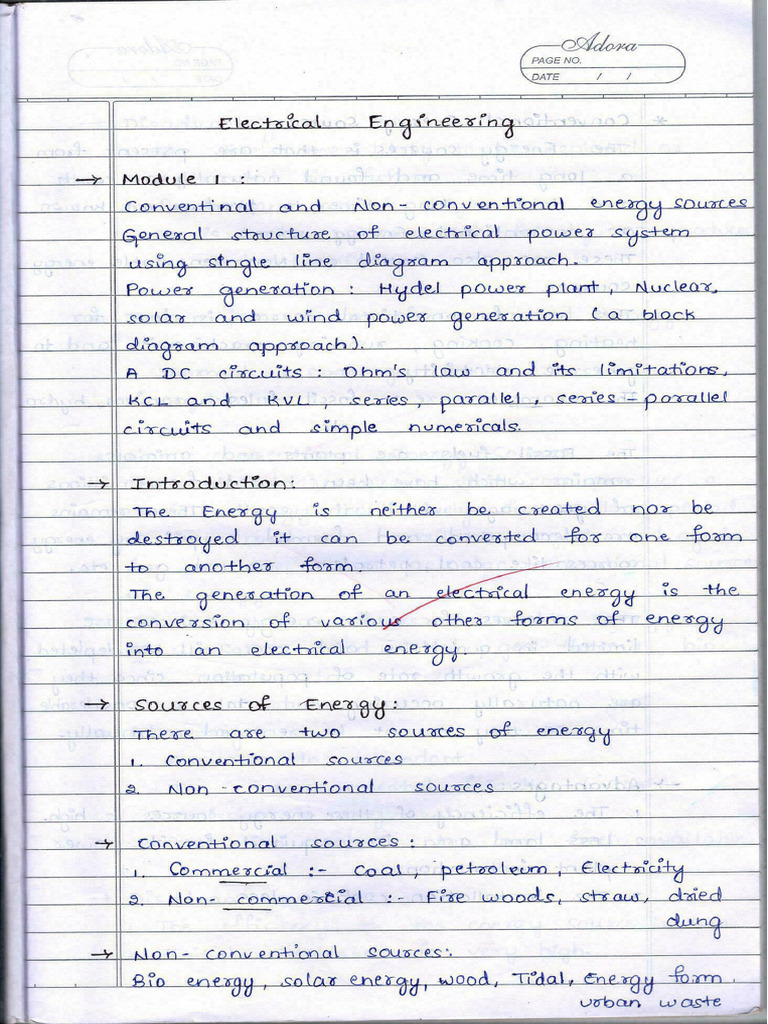 Adora
PAGE NO.
DATE / /
Electrical Engineering
→ Module 1 :
Conventinal and Non-conventional energy sources
General structure of electrical power system
using single line diagram approach.
Power generation : Hydel power plant, Nuclear,
solar and wind power generation (a block
diagram approach).
A DC circuits : Ohm's law and its limitations,
KCL and KVL, series, parallel, series-parallel
circuits and simple numericals.
→ Introduction:
The Energy is neither be created nor be
destroyed it can be converted for one form
to another form.
The generation of an electrical energy is the
conversion of various other forms of energy
into an electrical energy.
→ Sources of Energy:
There are two sources of energy
1. Conventional sources
2. Non-conventional sources
→ Conventional sources :
1. Commercial :- Coal, petroleum, Electricity
2. Non-commercial :- Fire woods, straw, dried
dung
→ Non-conventional sources:
Bio energy, solar energy, wood, Tidal, Energy form
urban waste